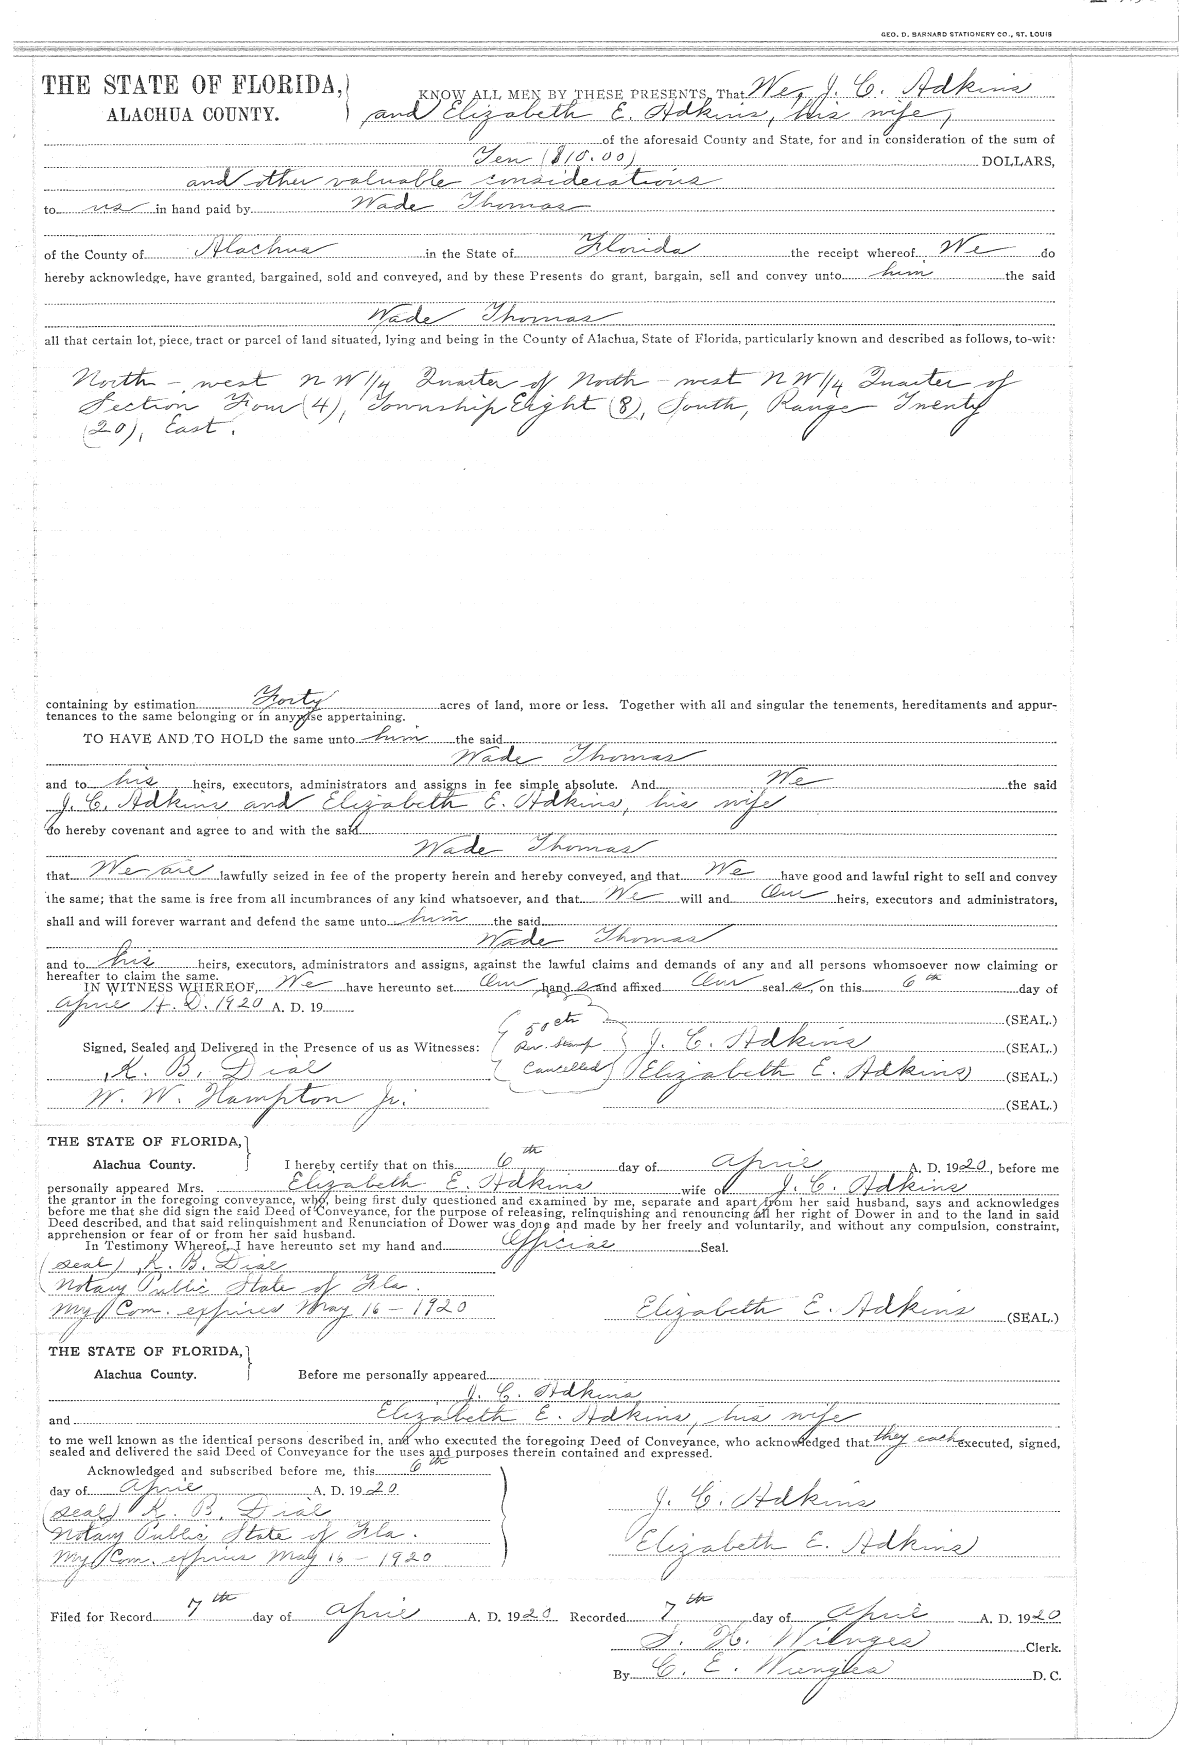 GEO. D. BARNARD STATIONERY CO., ST. LOUIS
THE STATE OF FLORIDA,
ALACHUA COUNTY.
KNOW ALL MEN BY THESE PRESENTS, That We, J. C. Adkins
and Elizabeth E. Adkins, his wife,
of the aforesaid County and State, for and in consideration of the sum of
Ten ($10.00) DOLLARS,
and other valuable considerations
to us in hand paid by Wade Thomas
of the County of Alachua in the State of Florida the receipt whereof We do
hereby acknowledge, have granted, bargained, sold and conveyed, and by these Presents do grant, bargain, sell and convey unto him the said
Wade Thomas
all that certain lot, piece, tract or parcel of land situated, lying and being in the County of Alachua, State of Florida, particularly known and described as follows, to-wit:
North-west NW 1/4 Quarter of North-west NW 1/4 Quarter of
Section Four (4), Township Eight (8), South, Range Twenty
(20), East.
containing by estimation Forty acres of land, more or less. Together with all and singular the tenements, hereditaments and appur-
tenances to the same belonging or in anywise appertaining.
TO HAVE AND TO HOLD the same unto him the said
Wade Thomas
and to his heirs, executors, administrators and assigns in fee simple absolute. And We the said
J. C. Adkins and Elizabeth E. Adkins, his wife
do hereby covenant and agree to and with the said
Wade Thomas
that We are lawfully seized in fee of the property herein and hereby conveyed, and that We have good and lawful right to sell and convey
the same; that the same is free from all incumbrances of any kind whatsoever, and that We will and Our heirs, executors and administrators,
shall and will forever warrant and defend the same unto him the said
Wade Thomas
and to his heirs, executors, administrators and assigns, against the lawful claims and demands of any and all persons whomsoever now claiming or
hereafter to claim the same.
IN WITNESS WHEREOF, We have hereunto set Our hand s and affixed Our seal s, on this 6th day of
April A. D. 1920 A. D. 19
(SEAL.)
Signed, Sealed and Delivered in the Presence of us as Witnesses: 50 cts Rev. Stamp Cancelled J. C. Adkins (SEAL.)
K. B. Dial Elizabeth E. Adkins (SEAL.)
W. W. Hampton Jr. (SEAL.)
THE STATE OF FLORIDA,
Alachua County. I hereby certify that on this 6th day of April A. D. 1920, before me
personally appeared Mrs. Elizabeth E. Adkins wife of J. C. Adkins
the grantor in the foregoing conveyance, who, being first duly questioned and examined by me, separate and apart from her said husband, says and acknowledges
before me that she did sign the said Deed of Conveyance, for the purpose of releasing, relinquishing and renouncing all her right of Dower in and to the land in said
Deed described, and that said relinquishment and Renunciation of Dower was done and made by her freely and voluntarily, and without any compulsion, constraint,
apprehension or fear of or from her said husband.
In Testimony Whereof, I have hereunto set my hand and Official Seal.
(seal) K. B. Dial
Notary Public State of Fla.
My Com. expires May 16 - 1920 Elizabeth E. Adkins (SEAL.)
THE STATE OF FLORIDA,
Alachua County. Before me personally appeared
J. C. Adkins
and Elizabeth E. Adkins, his wife
to me well known as the identical persons described in, and who executed the foregoing Deed of Conveyance, who acknowledged that they each executed, signed,
sealed and delivered the said Deed of Conveyance for the uses and purposes therein contained and expressed.
Acknowledged and subscribed before me, this 6th
day of April A. D. 1920
(seal) K. B. Dial J. C. Adkins
Notary Public State of Fla. Elizabeth E. Adkins
My Com. expires May 16 - 1920
Filed for Record 7th day of April A. D. 1920 Recorded 7th day of April A. D. 1920
S. H. Wienges Clerk.
By C. E. Wienges D. C.